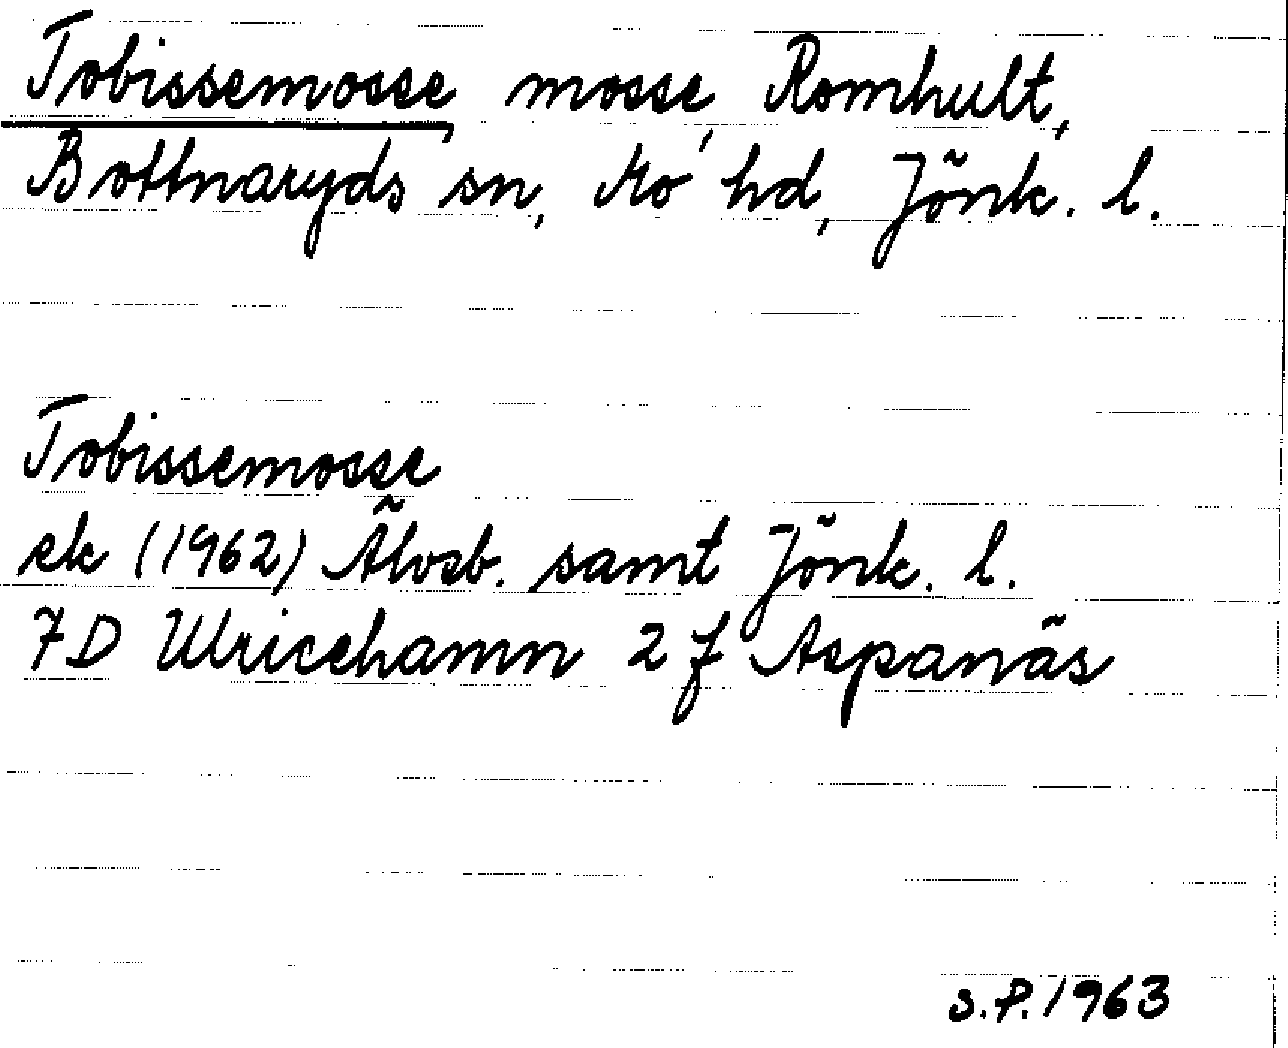 Tobissemosse, mosse, Romhult,
Bottnaryds sn, Mo hd, Jönk. l.
Tobissemosse
ek (1962) Älvsb. samt Jönk. l.
7D Ulricehamn 2 f Aspanäs
S.P. 1963